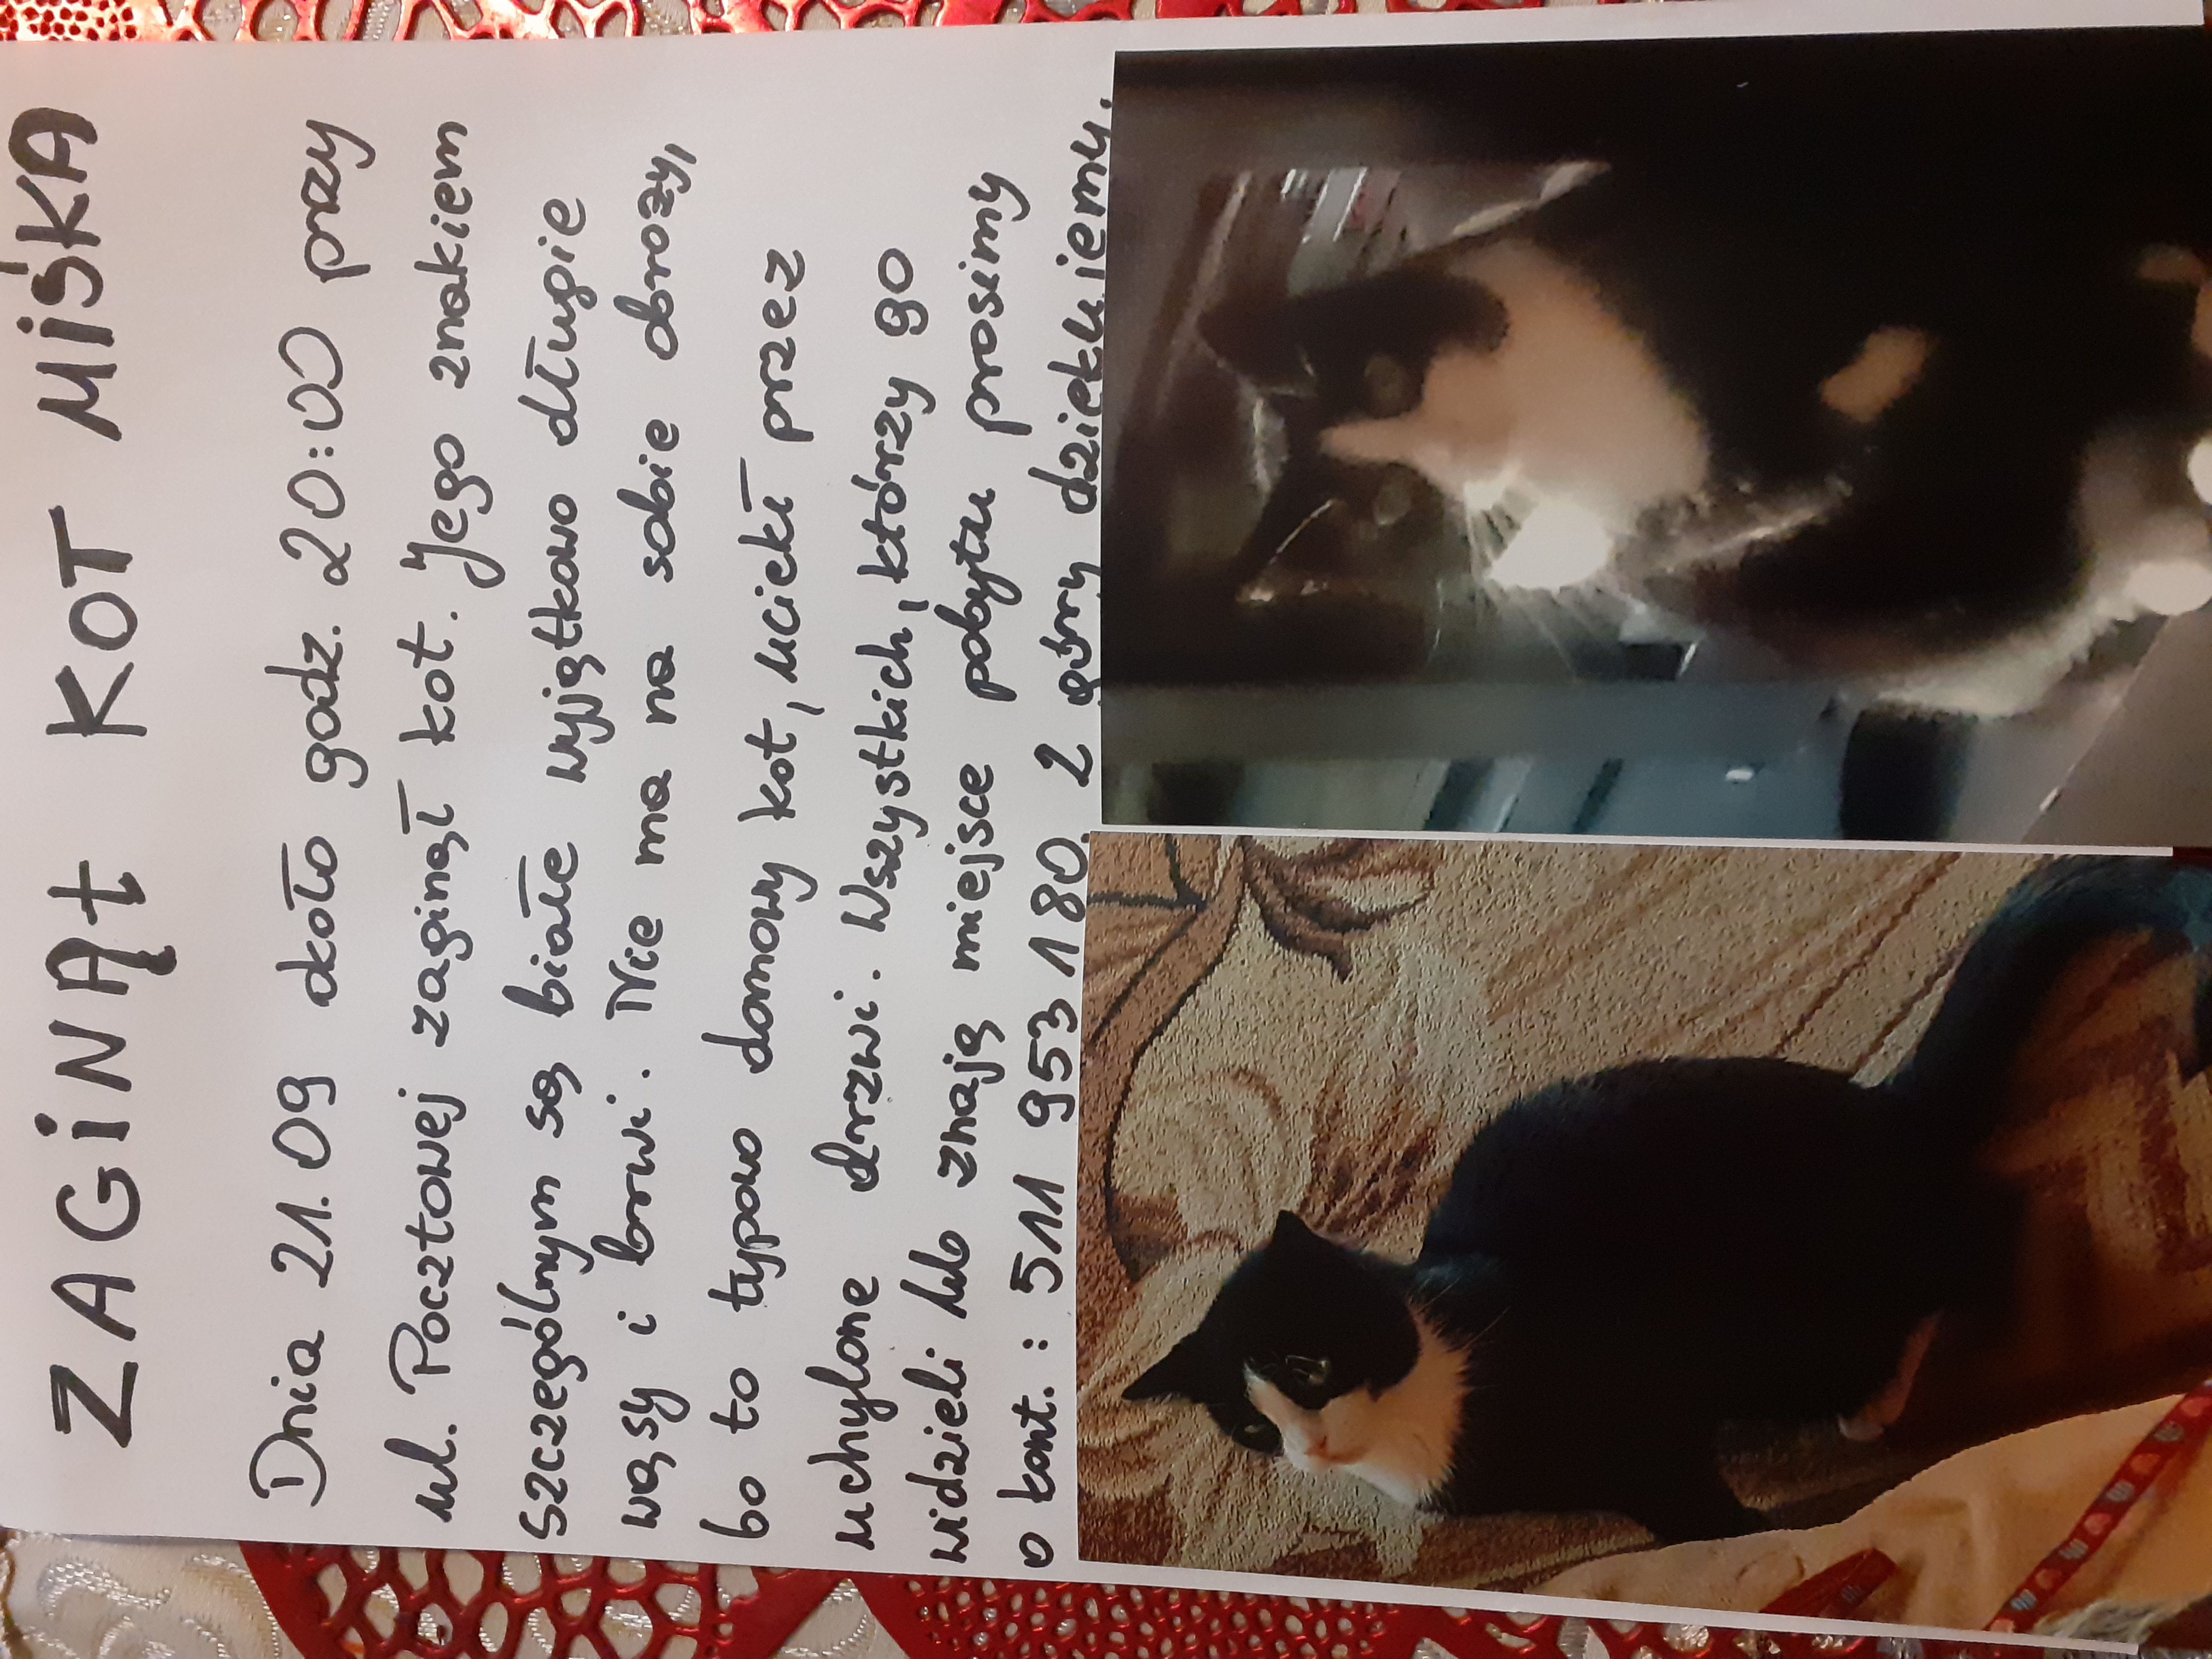 ZAGINĄŁ KOT MIŚKA
Dnia 21.09 około godz. 20:00 przy
ul. Pocztowej zaginął kot. Jego znakiem
szczególnym są białe wyjątkowo długie
wąsy i brwi. Nie ma na sobie obroży,
bo to typowo domowy kot, uciekł przez
uchylone drzwi. Wszystkich, którzy go
widzieli lub znają miejsce pobytu prosimy
o kont.: 511 953 180. Z góry dziękujemy.